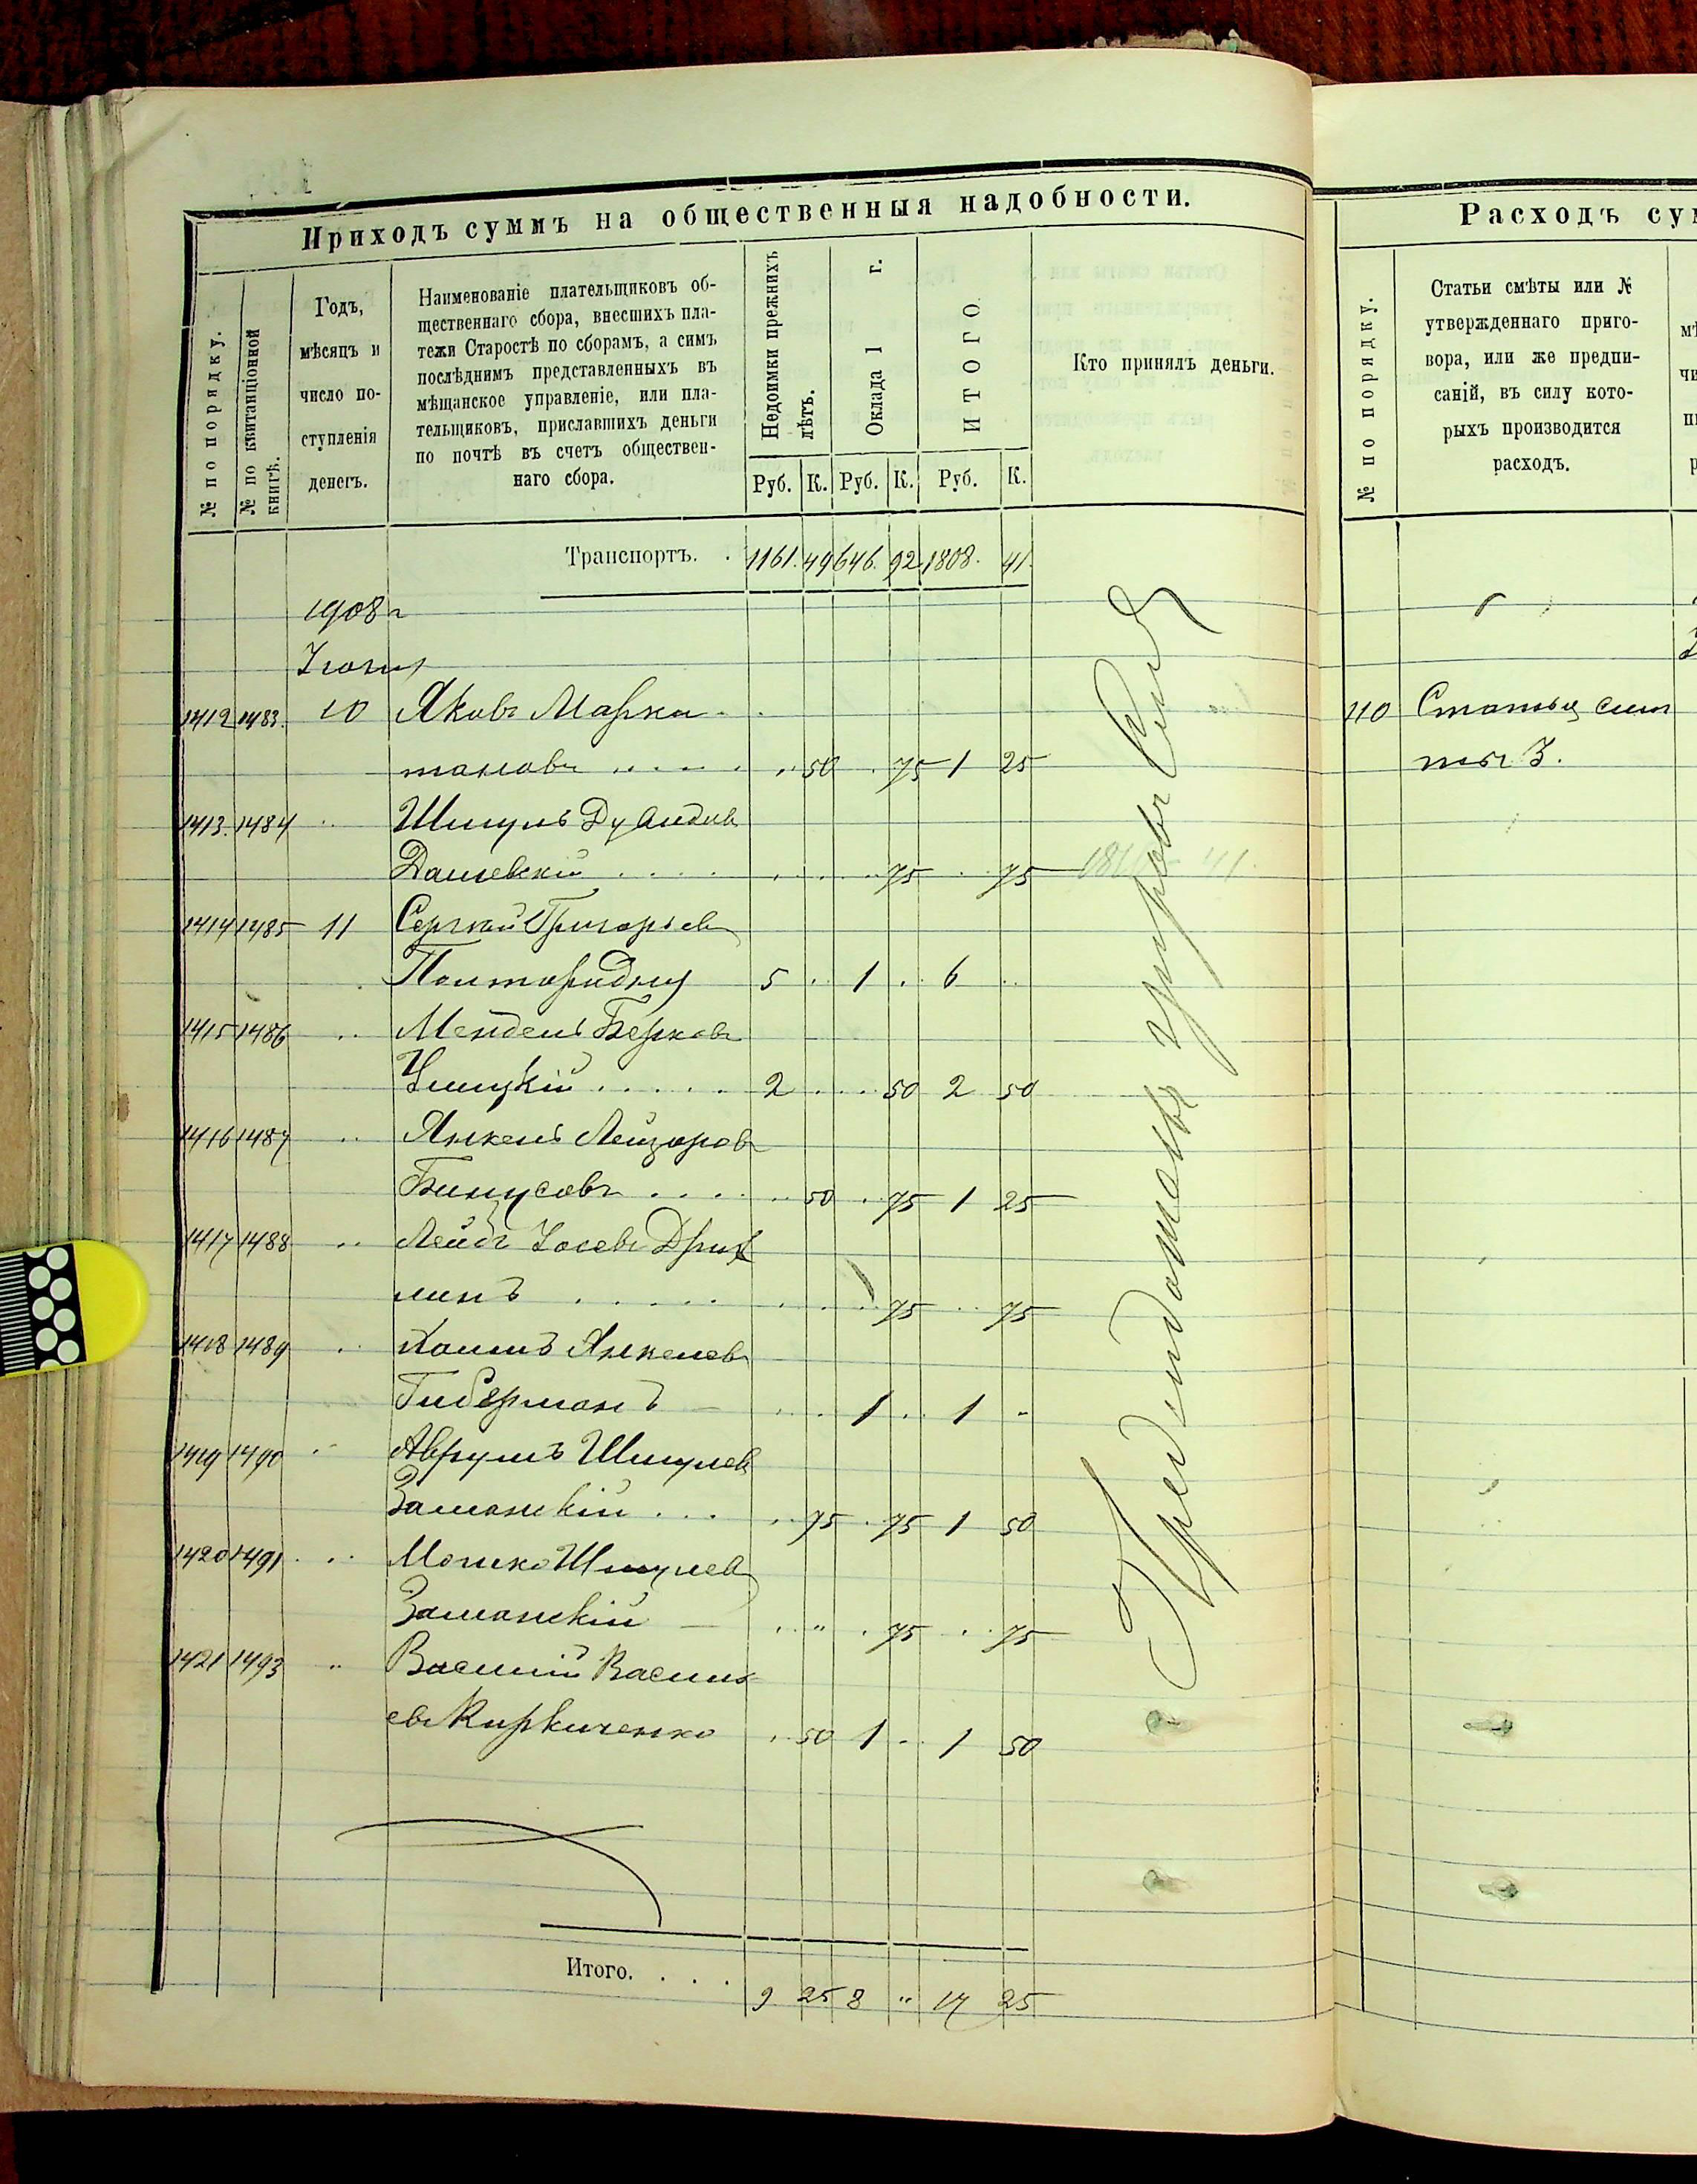 Приходъ суммъ на общественныя надобности.
№ по порядку.
№ по квитанціонной книгѣ.
Годъ,
мѣсяцъ и
число по-
ступленія
денегъ.
Наименованіе плательщиковъ об-
щественнаго сбора, внесшихъ пла-
тежи Старостѣ по сборамъ, а симъ
послѣднимъ представленныхъ въ
мѣщанское управленіе, или пла-
тельщиковъ, приславшихъ деньги
по почтѣ въ счетъ обществен-
наго сбора.
Недоимки прежнихъ лѣтъ.
Оклада 1 г.
ИТОГО
Кто принялъ деньги.
Руб. К. Руб. К. Руб. К.
Транспортъ. . 1161. 49 646. 92 1808. 41.
1908 г
Іюнь
1412 1483. 10 Яковъ
.. 50 . 75 1 25
1413. 1484 .. Шмуль
Дашевскій . . . . 75 .. 75
1414 1485 11 Сергѣй Григорьев
5 .. 1 .. 6 ..
1415 1486 .. Мендель Берковъ
2 . . . 50 2 50
1416 1487 .. Янкель Лейзоровъ
Бинусовъ . . . . .. 50 . 75 1 25
1417 1488 .. Лейбъ Іосевъ
линъ . . . . . 75 .. 75
1418 1489 .. Хаимъ Янкелевъ
Гиберманъ . . 1 .. 1 -
1419 1490 .. Аврумъ Шмулев
Заманскій . . . .. 75 . 75 1 50
1420 1491. .. Мошко Шмулев
Заманскій .. " . 75 .. 75
1421 1493 " Василій Василь
евъ Кирвиченко . 50 1 .. 1 50
Итого. . . . 9 25 8 " 17 25
Расходъ сум
№ по порядку.
Статьи смѣты или №
утвержденнаго приго-
вора, или же предпи-
саній, въ силу кото-
рыхъ производится
расходъ.
110 Статья смѣ
ты 3.